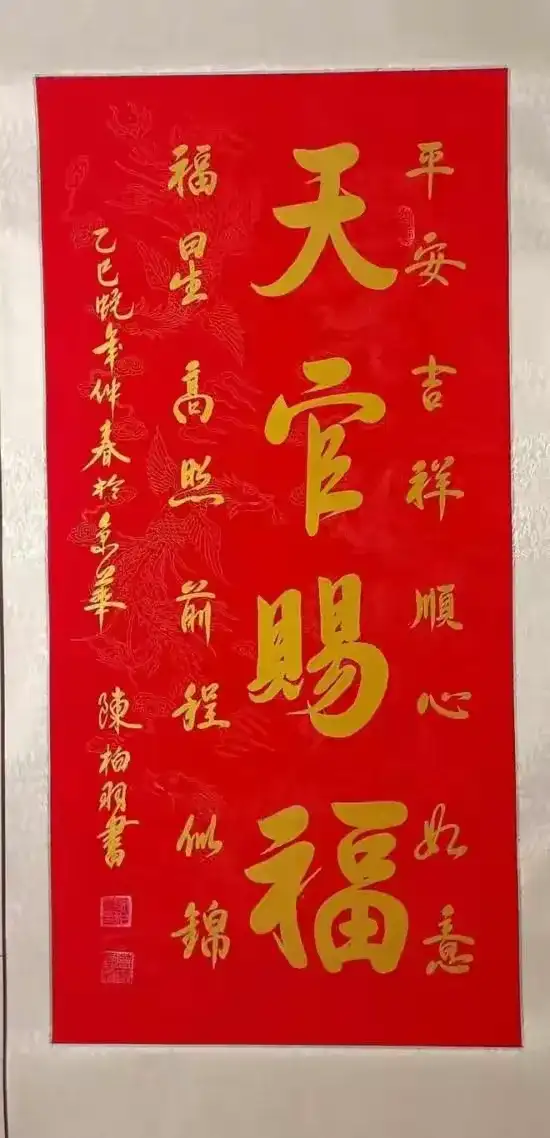 平安吉祥順心如意
天官賜福
福星高照前程似錦
乙巳蛇年仲春於京華 陳柏羽書